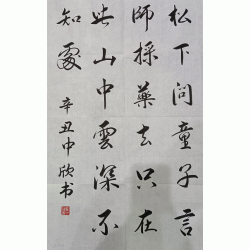 松下问童子言
師採藥去只在
此山中雲深不
知處
辛丑中欣书